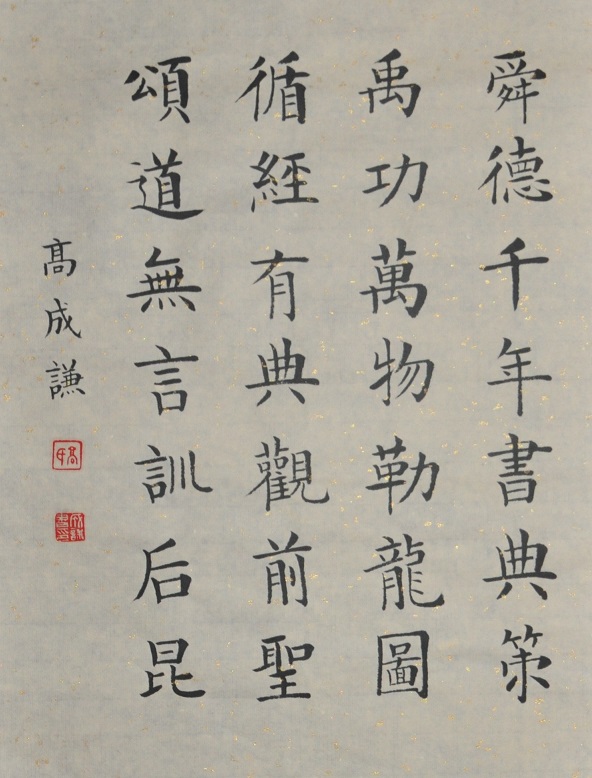 舜德千年書典策
禹功萬物勒龍圖
循經有典觀前聖
頌道無言訓后昆
高成謙
高氏
成謙書印